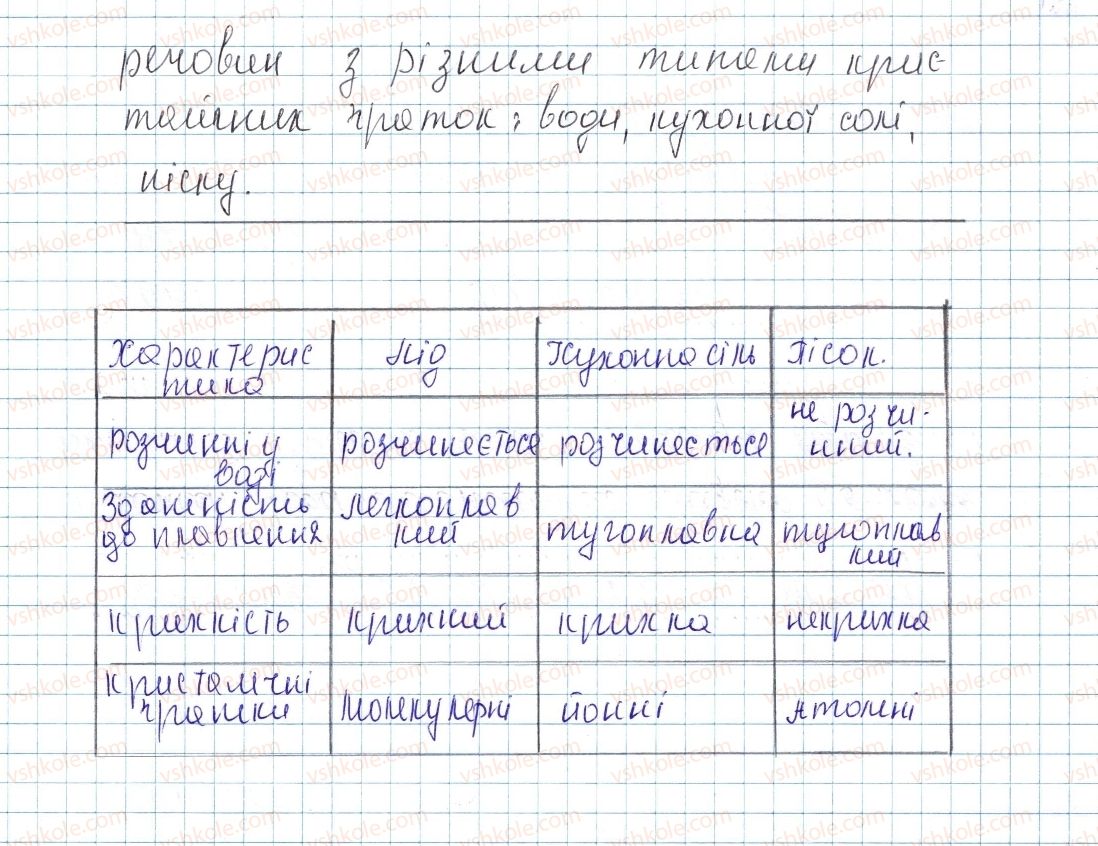 речовин з різними типами крис-
талічних граток: води, кухонної солі,
піску.
Характерис
тика
Лід
Кухонна сіль
Пісок.
розчинні у
воді
розчиняється
розчиняється
не розчи-
нний.
Здатність
до плавлення
легкоплав
кий
тугоплавка
тугоплав
кий
крихкість
крихкий
крихка
некрихка
кристалічні
гратки
молекулярні
йонні
Атомні